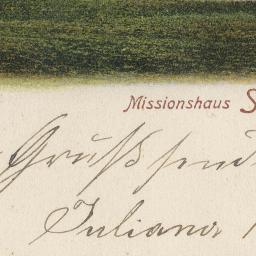 Missionshaus S
Gruß send
Juliana